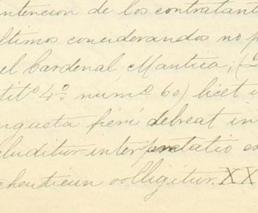 ntencion de los contratant
ltimos considerandos no p
el Cardenal Mantica, (
tit.o 4.o num.o 6o) licet i
ngusta fieri debeat in
luditur interpretatio e
colligitur. XX